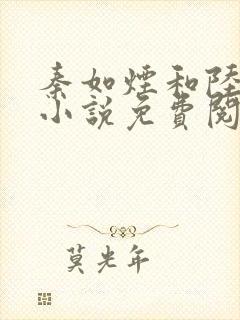 秦如煙和陸
小說免費閱
莫光年